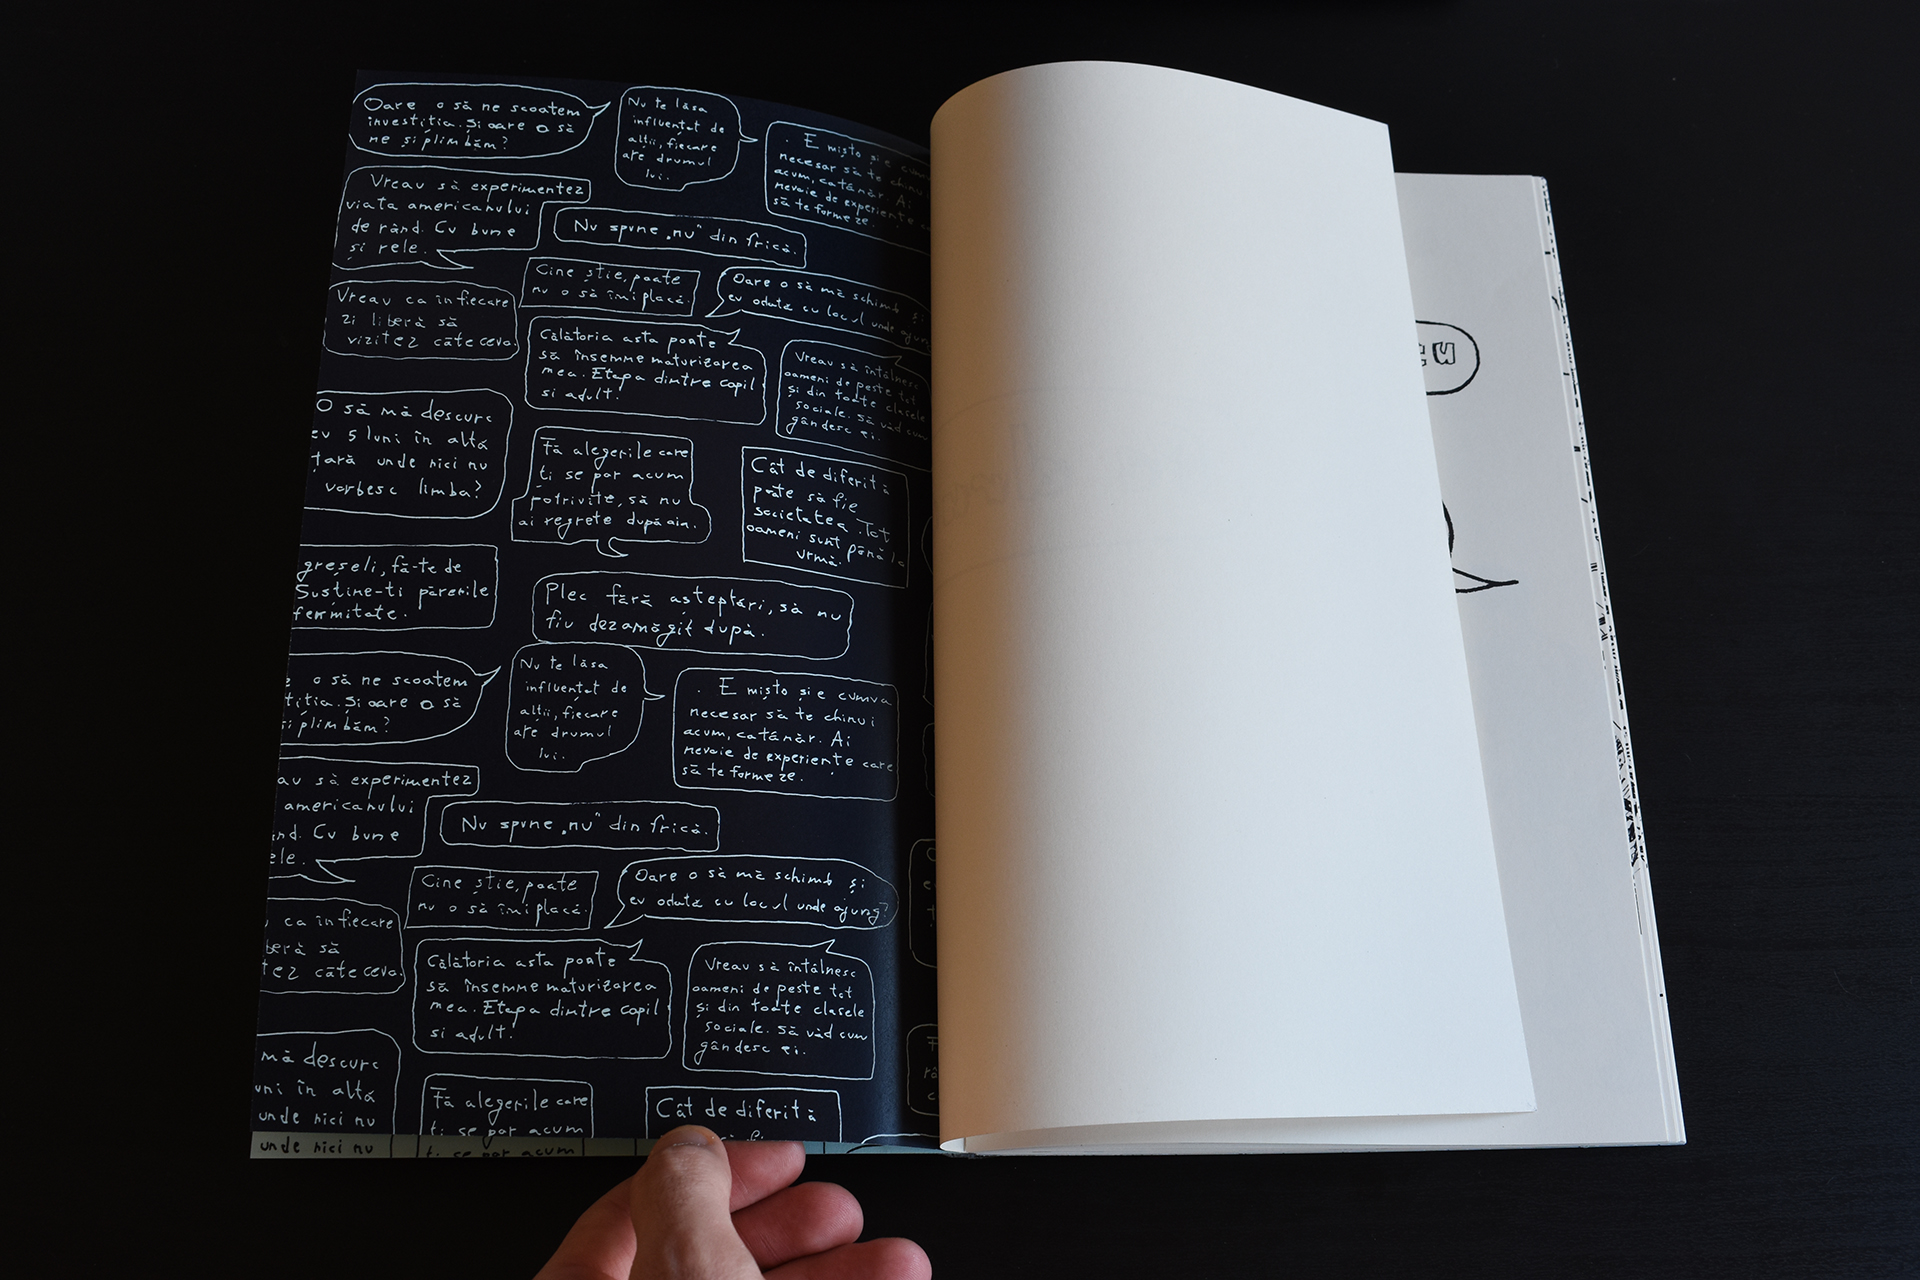 Oare o să ne scoatem
investiția. Și oare o să
ne și plimbăm?
Nu te lăsa
influențat de
alții, fiecare
are drumul
lui.
. E mișto și e cumv
necesar să te chinui
acum, cat tânăr. Ai
nevoie de experiențe ca
să te formeze.
Vreau să experimentez
viata americanului
de rând. Cu bune
și rele.
Nu spune „nu” din frică.
Cine știe, poate
nu o să îmi placă.
Oare o să mă schimb și
eu odată cu locul unde ajung
Vreau ca în fiecare
zi liberă să
vizitez câte ceva.
Călătoria asta poate
să însemne maturizarea
mea. Etapa dintre copil
si adult!
Vreau să întâlnesc
oameni de peste tot
și din toate clasele
sociale. să văd cum
gândesc ei.
O să mă descurc
eu 5 luni în altă
țară unde nici nu
vorbesc limba?
Fă alegerile care
ti se par acum
potrivite, să nu
ai regrete după ain.
Cât de diferită
poate să fie
societatea. Tot
oameni sunt până la
urmă.
greseli, fă-te de
Sustine-ti părerile
fermitate.
Plec fără așteptări, să nu
fiu dezamăgit după.
o să ne scoatem
tiția. Și oare o să
și plimbăm?
Nu te lăsa
influențat de
alții, fiecare
are drumul
lui.
. E mișto și e cumva
necesar să te chinui
acum, cat tânăr. Ai
nevoie de experiențe care
să te formeze.
au să experimentez
americanului
ând. Cu bune
ele.
Nu spune „nu” din frică.
Cine știe, poate
nu o să îmi placă.
Oare o să mă schimb și
eu odată cu locul unde ajung?
ca în fiecare
beră să
tez câte ceva.
Călătoria asta poate
să însemne maturizarea
mea. Etapa dintre copil
si adult!
Vreau să întâlnesc
oameni de peste tot
și din toate clasele
sociale. să văd cum
gândesc ei.
mă descurc
uni în altă
unde nici nu
Fă alegerile care
ti se par acum
Cât de diferită
unde nici nu
ti se par acum